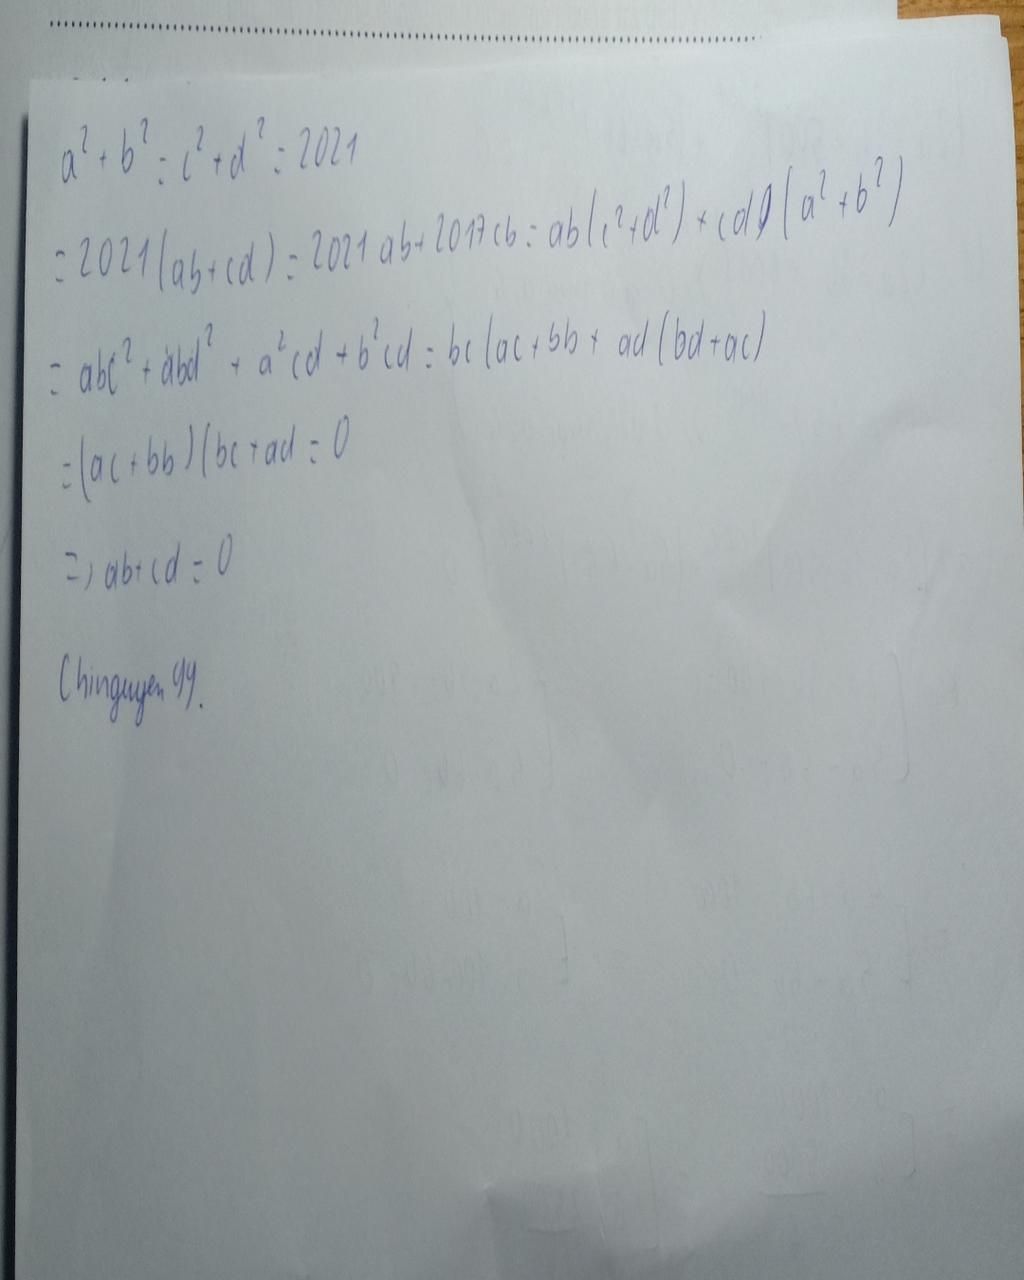 a² + b² = c² + d² = 2021
= 2021(ab + cd) = 2021ab + 2017cb = ab(c² + d²) + cd(a² + b²)
= abc² + abd² + a²cd + b²cd = bc(ac + bb + ad(bd + ac)
= (ac + bb)(bc + ad = 0
=> ab + cd = 0
Chinguyen 99.